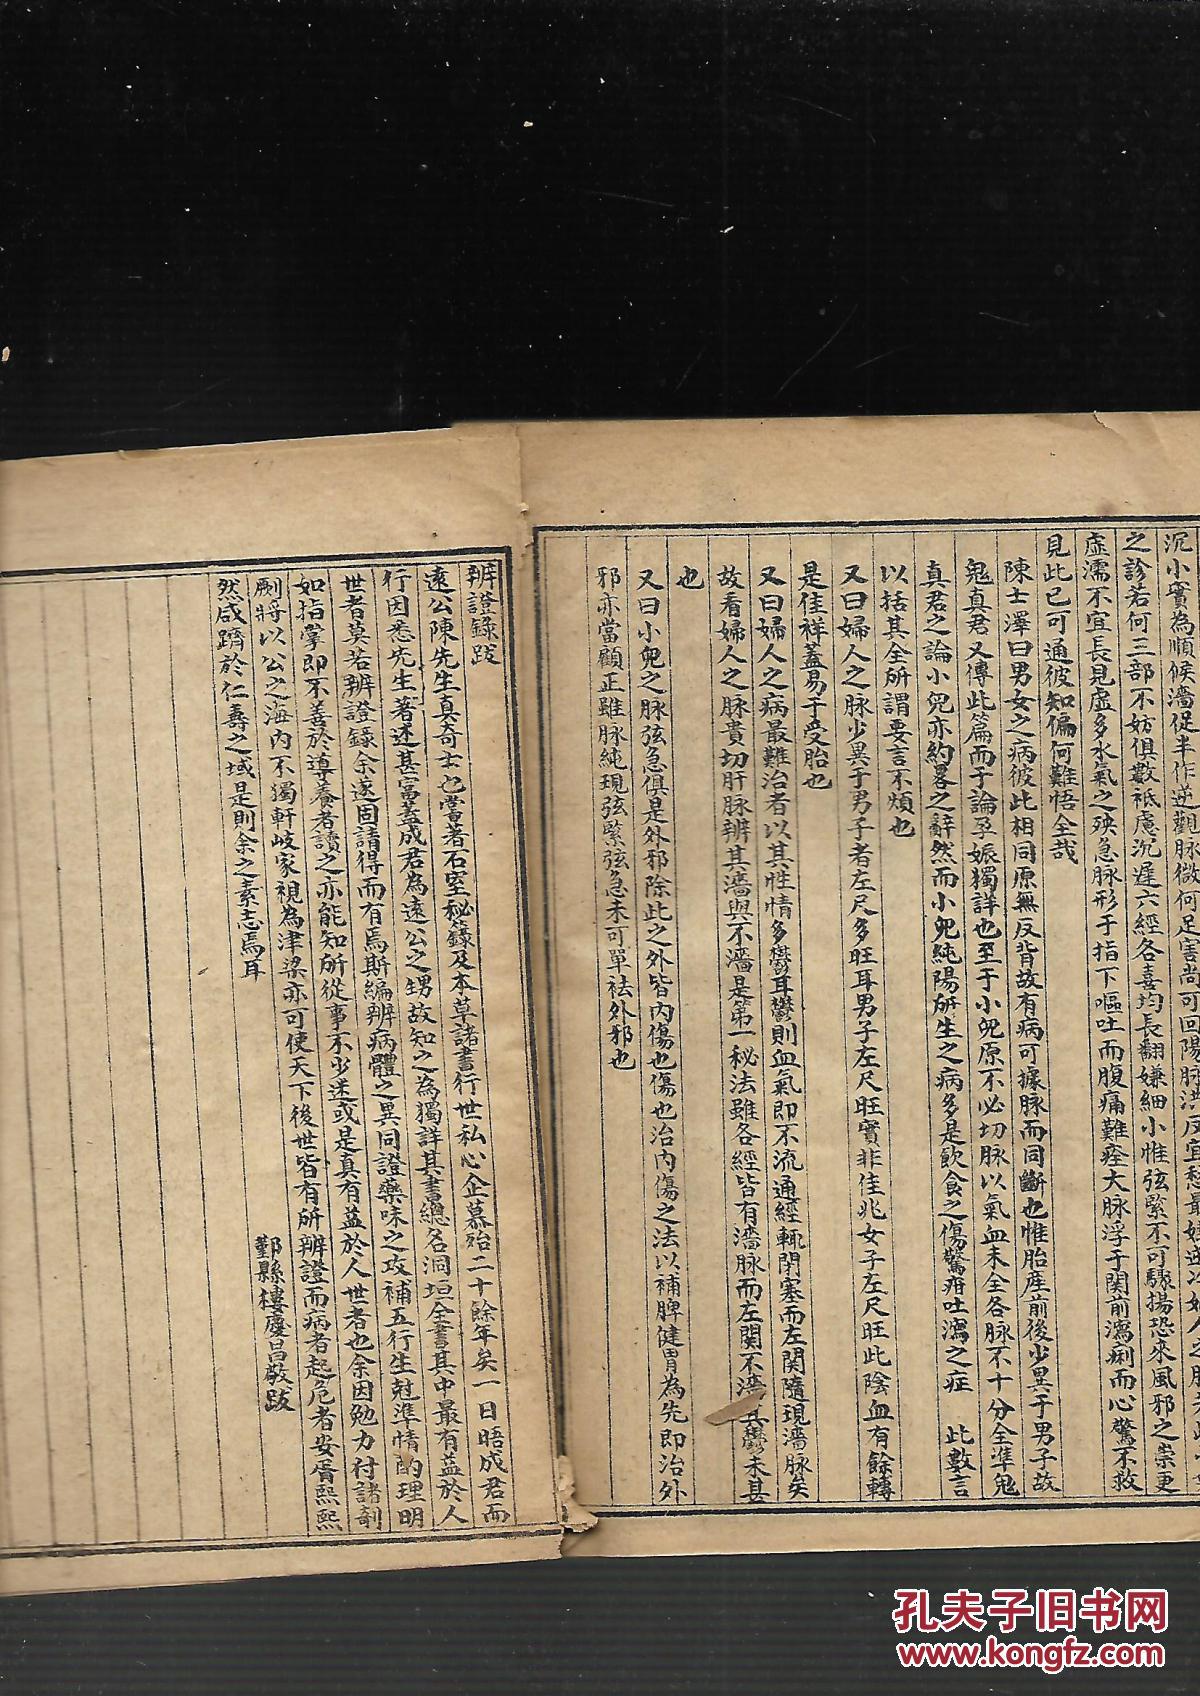 沉小實為順候濇促半作逆觀脉微何足害尚可回陽脉洪反宜愁最
之診若何三部不妨俱數祇慮沉遲六經各喜均長翻嫌細小惟弦緊不可驟揚恐來風邪之祟更
虛濡不宜長見虛多水氣之殃急脉形于指下嘔吐而腹痛難痊大脉浮于関前瀉痢而心驚不救
見此已可通彼知偏何難悟全哉
陳士澤曰男女之病彼此相同原無反背故有病可據脉而同斷也惟胎産前後少異于男子故
鬼真君又傳此篇而于論孕娠獨詳也至于小兒原不必切脉以氣血未全各脉不十分全準鬼
真君之論小兒亦約畧之辭然而小兒純陽所生之病多是飲食之傷驚疳吐瀉之症 此數言
以括其全所謂要言不煩也
又曰婦人之脉少異于男子者左尺多旺耳男子左尺旺實非佳兆女子左尺旺此陰血有餘轉
是佳祥蓋易于受胎也
又曰婦人之病最難治者以其性情多鬱耳鬱則血氣即不流通經輒閉塞而左関隨現濇脉矣
故看婦人之脉貴切肝脉辨其濇與不濇是第一秘法雖各經皆有濇脉而左関不濇其鬱未甚
也
又曰小兒之脉弦急俱是外邪除此之外皆内傷也傷也治内傷之法以補脾健胃為先即治外
邪亦當顧正雖脉純現弦緊弦急未可單祛外邪也
辨證錄跋
遠公陳先生真奇士也嘗著石室秘籙及本草諸書行世私心企慕殆二十餘年矣一日晤成君而
行因悉先生著述甚富蓋成君為遠公之甥故知之為獨詳其書總名洞垣全書其中最有益於人
世者莫若辨證錄余遂固請得而有焉斯編辨病體之異同證藥味之攻補五行生尅準情酌理明
如指掌即不善於導養者讀之亦能知所從事不少迷或是真有益於人世者也余因勉力付諸剞
劂將以公之海内不獨軒岐家視為津梁亦可使天下後世皆有所辨證而病者起危者安胥熙熙
然咸躋於仁壽之域是則余之素志焉耳
鄞縣樓慶昌敬跋
孔夫子旧书网
www.kongfz.com